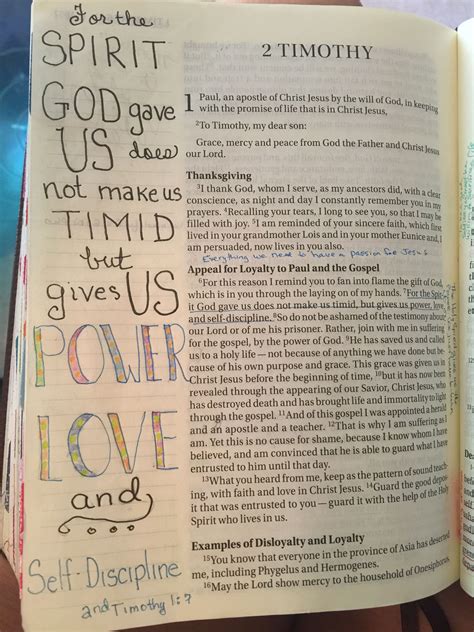 For the
SPIRIT
GOD gave
US does
not make us
TIMID
but
gives US
POWER
LOVE
and
Self-Discipline
2nd Timothy 1:7
2 TIMOTHY
1 Paul, an apostle of Christ Jesus by the will of God, in keeping
with the promise of life that is in Christ Jesus,
2To Timothy, my dear son:
Grace, mercy and peace from God the Father and Christ Jesus
our Lord.
Thanksgiving
3I thank God, whom I serve, as my ancestors did, with a clear
conscience, as night and day I constantly remember you in my
prayers. 4Recalling your tears, I long to see you, so that I may be
filled with joy. 5I am reminded of your sincere faith, which first
lived in your grandmother Lois and in your mother Eunice and, I
am persuaded, now lives in you also.
Everything we need to have a passion for Jesus
Appeal for Loyalty to Paul and the Gospel
6For this reason I remind you to fan into flame the gift of God,
which is in you through the laying on of my hands. 7For the Spir-
it God gave us does not make us timid, but gives us power, love
and self-discipline. 8So do not be ashamed of the testimony about
our Lord or of me his prisoner. Rather, join with me in suffering
for the gospel, by the power of God. 9He has saved us and called
us to a holy life — not because of anything we have done but be-
cause of his own purpose and grace. This grace was given us in
Christ Jesus before the beginning of time, 10but it has now been
revealed through the appearing of our Savior, Christ Jesus, who
has destroyed death and has brought life and immortality to light
through the gospel. 11And of this gospel I was appointed a herald
and an apostle and a teacher. 12That is why I am suffering as I
am. Yet this is no cause for shame, because I know whom I have
believed, and am convinced that he is able to guard what I have
entrusted to him until that day.
13What you heard from me, keep as the pattern of sound teach-
ing, with faith and love in Christ Jesus. 14Guard the good depos-
it that was entrusted to you — guard it with the help of the Holy
Spirit who lives in us.
Examples of Disloyalty and Loyalty
15You know that everyone in the province of Asia has deserted
me, including Phygelus and Hermogenes.
16May the Lord show mercy to the household of Onesiphorus,